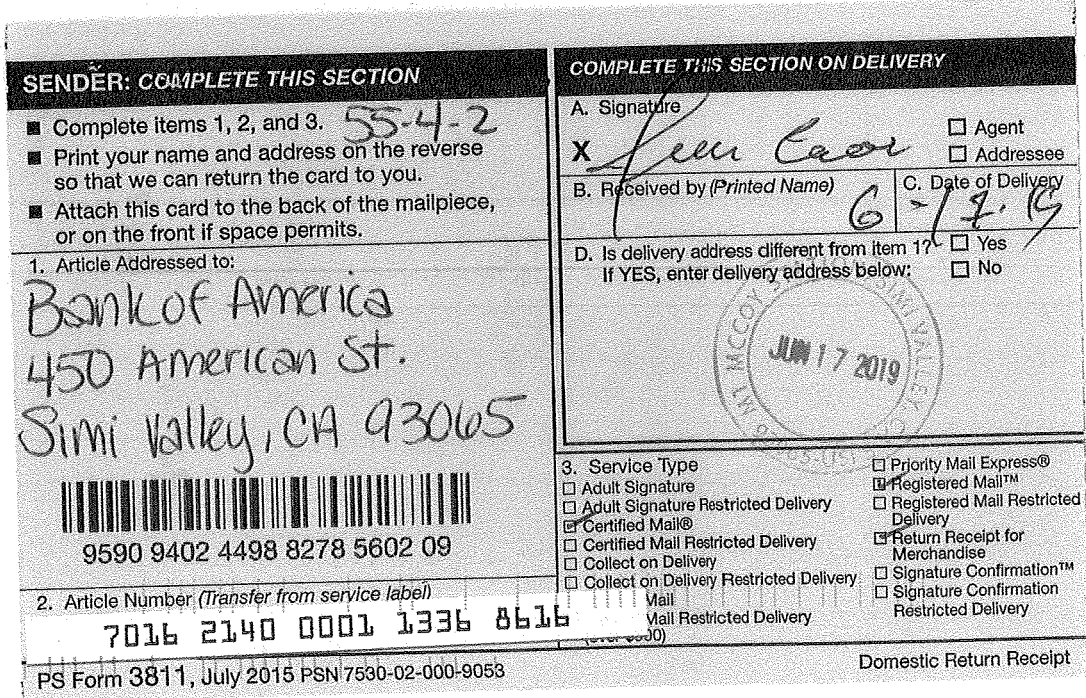 SENDER: COMPLETE THIS SECTION
■ Complete items 1, 2, and 3. 55-4-2
■ Print your name and address on the reverse
so that we can return the card to you.
■ Attach this card to the back of the mailpiece,
or on the front if space permits.
1. Article Addressed to:
Bank of America
450 American St.
Simi Valley, CA 93065
9590 9402 4498 8278 5602 09
2. Article Number (Transfer from service label)
7016 2140 0001 1336 8616
COMPLETE THIS SECTION ON DELIVERY
A. Signature
X
☐ Agent
☐ Addressee
B. Received by (Printed Name)
C. Date of Delivery
6-17-19
D. Is delivery address different from item 1? ☐ Yes
If YES, enter delivery address below: ☐ No
MT MCCOY SIMI VALLEY, C
JUN 17 2019
USPS
3. Service Type
☐ Adult Signature
☐ Adult Signature Restricted Delivery
☑ Certified Mail®
☐ Certified Mail Restricted Delivery
☐ Collect on Delivery
☐ Collect on Delivery Restricted Delivery
Mail
Mail Restricted Delivery
☐ Priority Mail Express®
☑ Registered Mail™
☐ Registered Mail Restricted
Delivery
☑ Return Receipt for
Merchandise
☐ Signature Confirmation™
☐ Signature Confirmation
Restricted Delivery
PS Form 3811, July 2015 PSN 7530-02-000-9053
Domestic Return Receipt